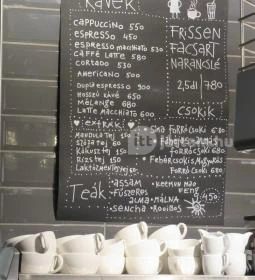 KÁVÉK
CAPPUCCINO 550
ESPRESSO 450
ESPRESSO MACCHIATO 530
CAFFÈ LATTE 580
CORTADO 530
AMERICANO 500
DUPLA ESPRESSO 900
HOSSZÚ KÁVÉ 450
MÉLANGE 680
LATTE MACCHIATO 600
EXTRÁK
MANDULATEJ 150
SZÓJATEJ 60
KÓKUSZTEJ 150
RIZSTEJ 150
LAKTÓZMENTES TEJ
FRISSEN
FACSART
NARANCSLÉ
2,5dl / 780
CSOKIK
SIMA FORRÓCSOKI 680
FORRÓCSOKI 680
FEHÉRCSOKIS
FORRÓCSOKI
TEÁK
ASSAM
FŰSZERES
ALMA-MÁLNA
SENCHA
ROOIBOS
KEEMUN MAO
FENG
450